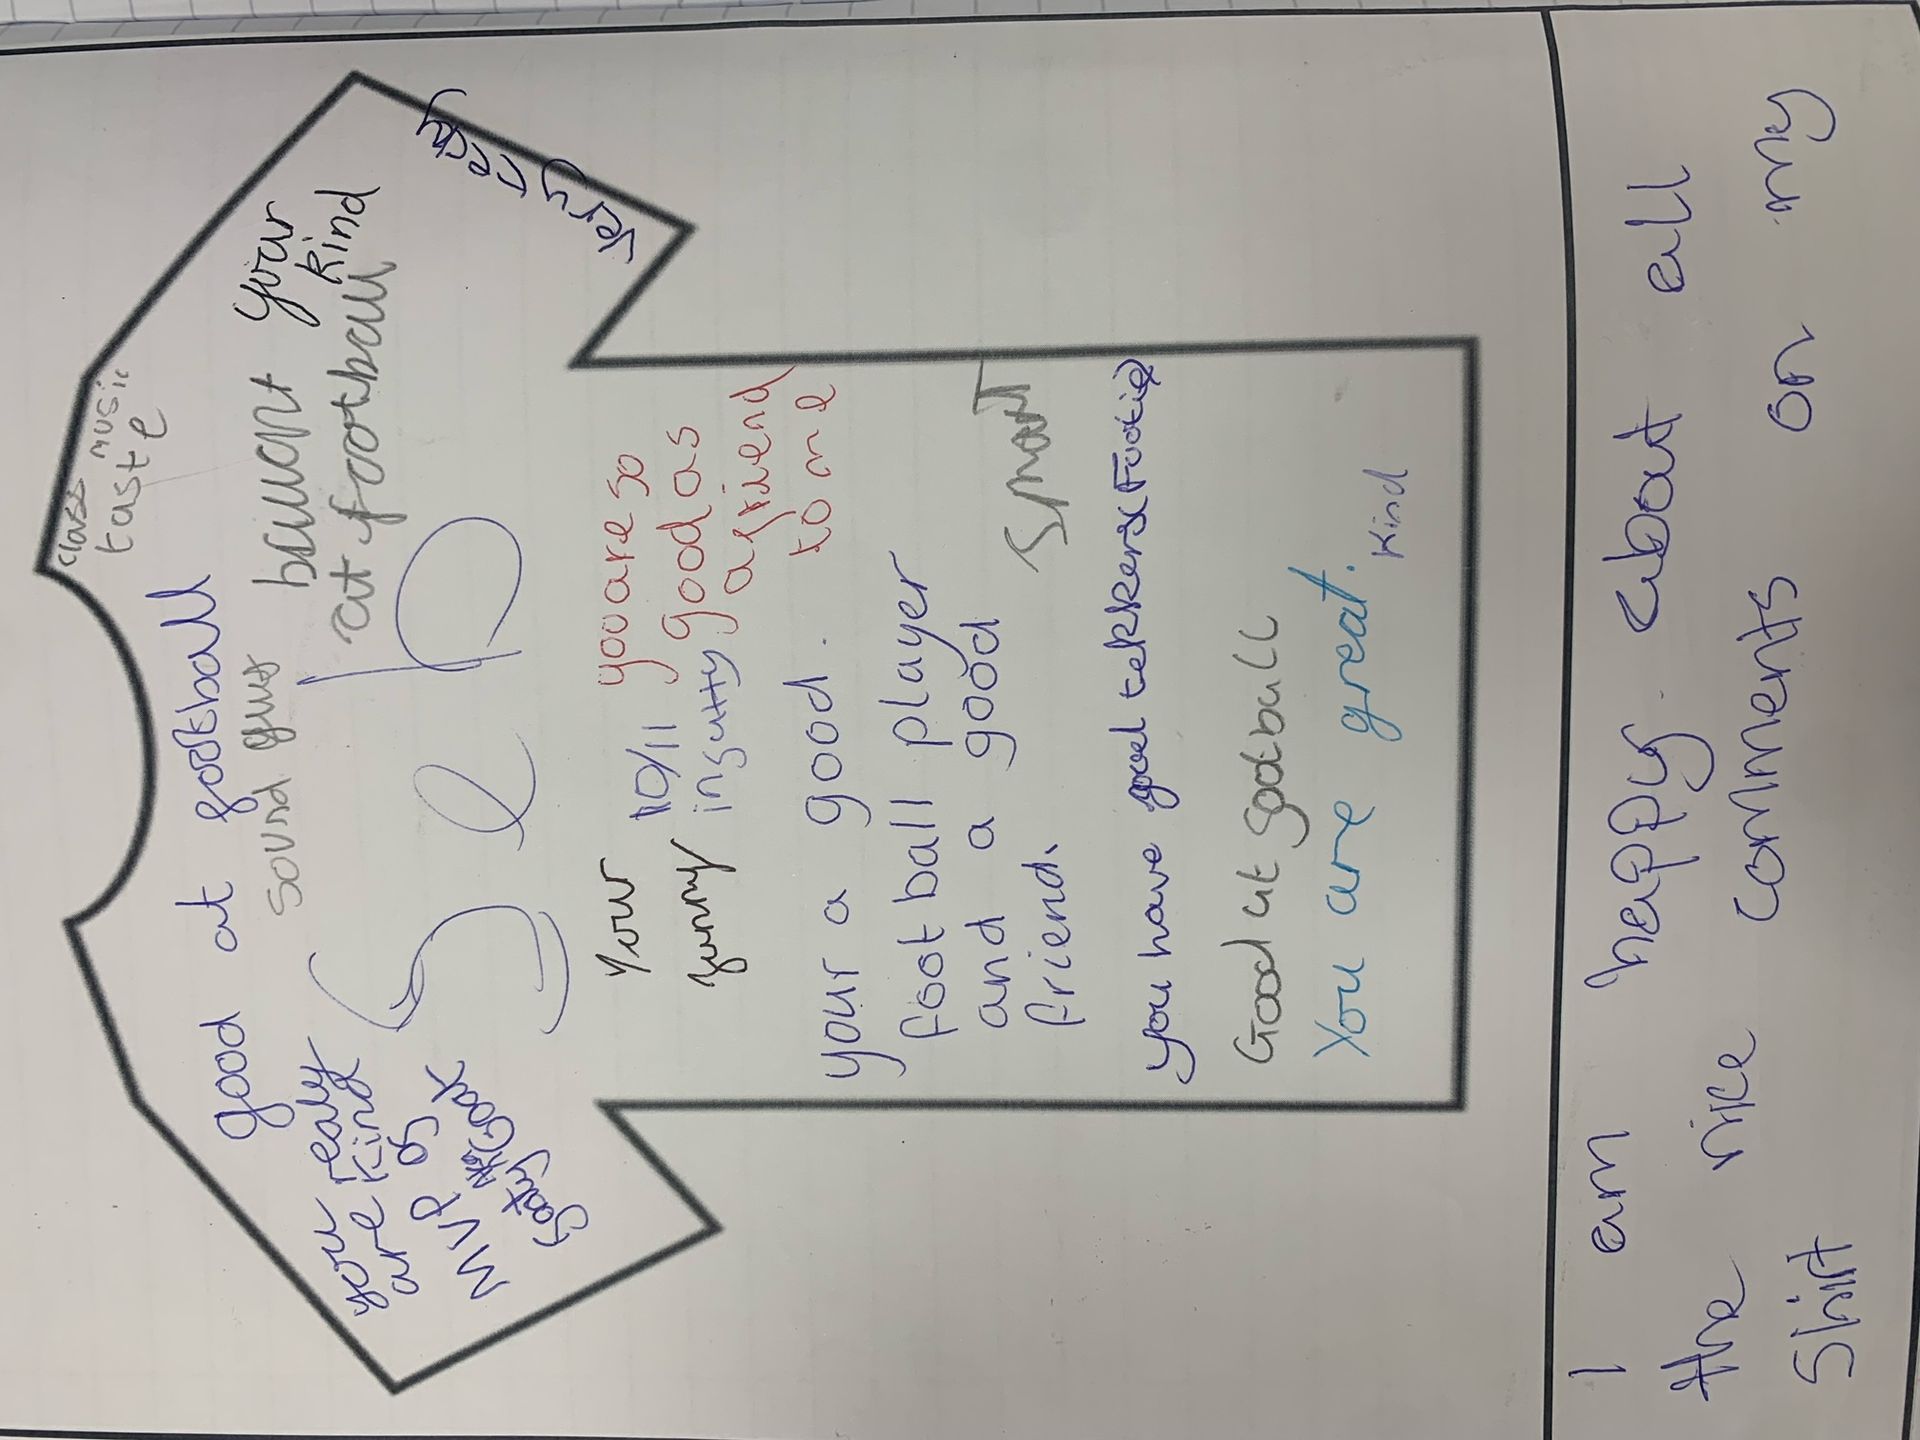 class
music
taste
good at football
sound guy
your
kind
at football
Very
Seb
you realy
are kind
MVP of
Goat
Your
funny
10/11
you are so
good as
a friend
to me
your a good.
football player
and a good
friend.
Smart
you have good tekkers (Footie)
Good at football
You are great.
Kind
I am happy about all
the nice comments on my
Shirt